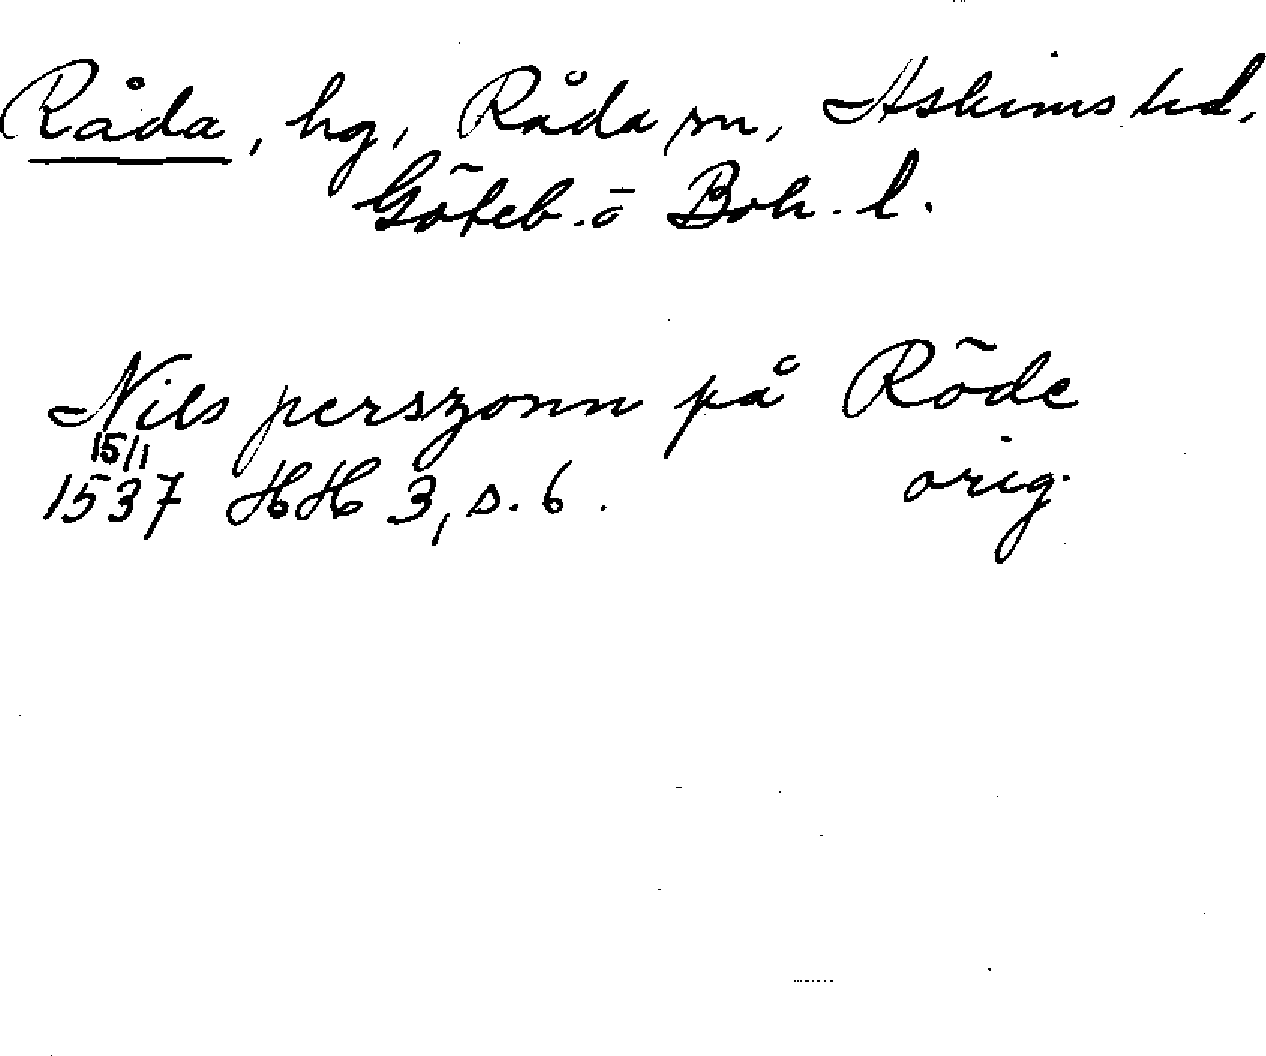 Råda, hg, Råda sn, Askims hd,
Göteb. ö Boh. l.
Nils perszonn på Röde
15/1
1537 HH 3, s. 6. orig.